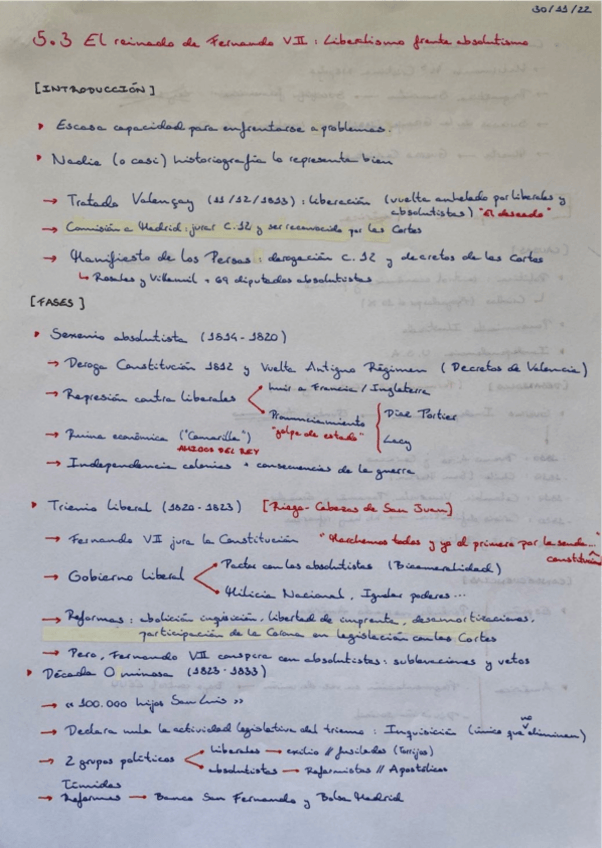 30/11/22
5.3 El reinado de Fernando VII: Liberalismo frente absolutismo
[INTRODUCCIÓN]
Escasa capacidad para enfrentarse a problemas.
Nadie (o casi) historiografía lo representa bien
→ Tratado Valençay (11/12/1813): liberación (vuelta anhelado por liberales y
absolutistas) "El deseado"
→ Comisión a Madrid: jurar C.12 y ser reconocido por las Cortes
→ Manifiesto de los Persas: derogación C.12 y decretos de las Cortes
↳ Rosales y Villamil + 69 diputados absolutistas
[FASES]
Sexenio absolutista (1814-1820)
→ Deroga Constitución 1812 y Vuelta Antiguo Régimen (Decretos de Valencia)
→ Represión contra liberales
huir a Francia / Inglaterra
Pronunciamiento
"golpe de estado"
Díaz Portier
Lacy
→ Ruina económica ("Camarilla")
AMIGOS DEL REY
→ Independencia colonias + consecuencias de la guerra
Trienio Liberal (1820-1823) [Riego-Cabezas de San Juan]
→ Fernando VII jura la Constitución "Marchemos todos y yo el primero por la senda...
constitución
→ Gobierno Liberal
Pactar con los absolutistas (Bicameralidad)
Milicia Nacional, Igualar poderes...
→ Reformas: abolición inquisición, libertad de imprenta, desamortizaciones,
participación de la Corona en legislación con las Cortes
→ Pero, Fernando VII conspira con absolutistas: sublevaciones y vetos
Década Ominosa (1823-1833)
→ "100.000 hijos San Luis"
→ Declara nula la actividad legislativa del trienio: Inquisición (único que no eliminen)
→ 2 grupos políticos
liberales → exilio // fusilados (Torrijos)
absolutistas → Reformistas // Apostólicos
Tímidas
→ Reformas → Banco San Fernando y Bolsa Madrid